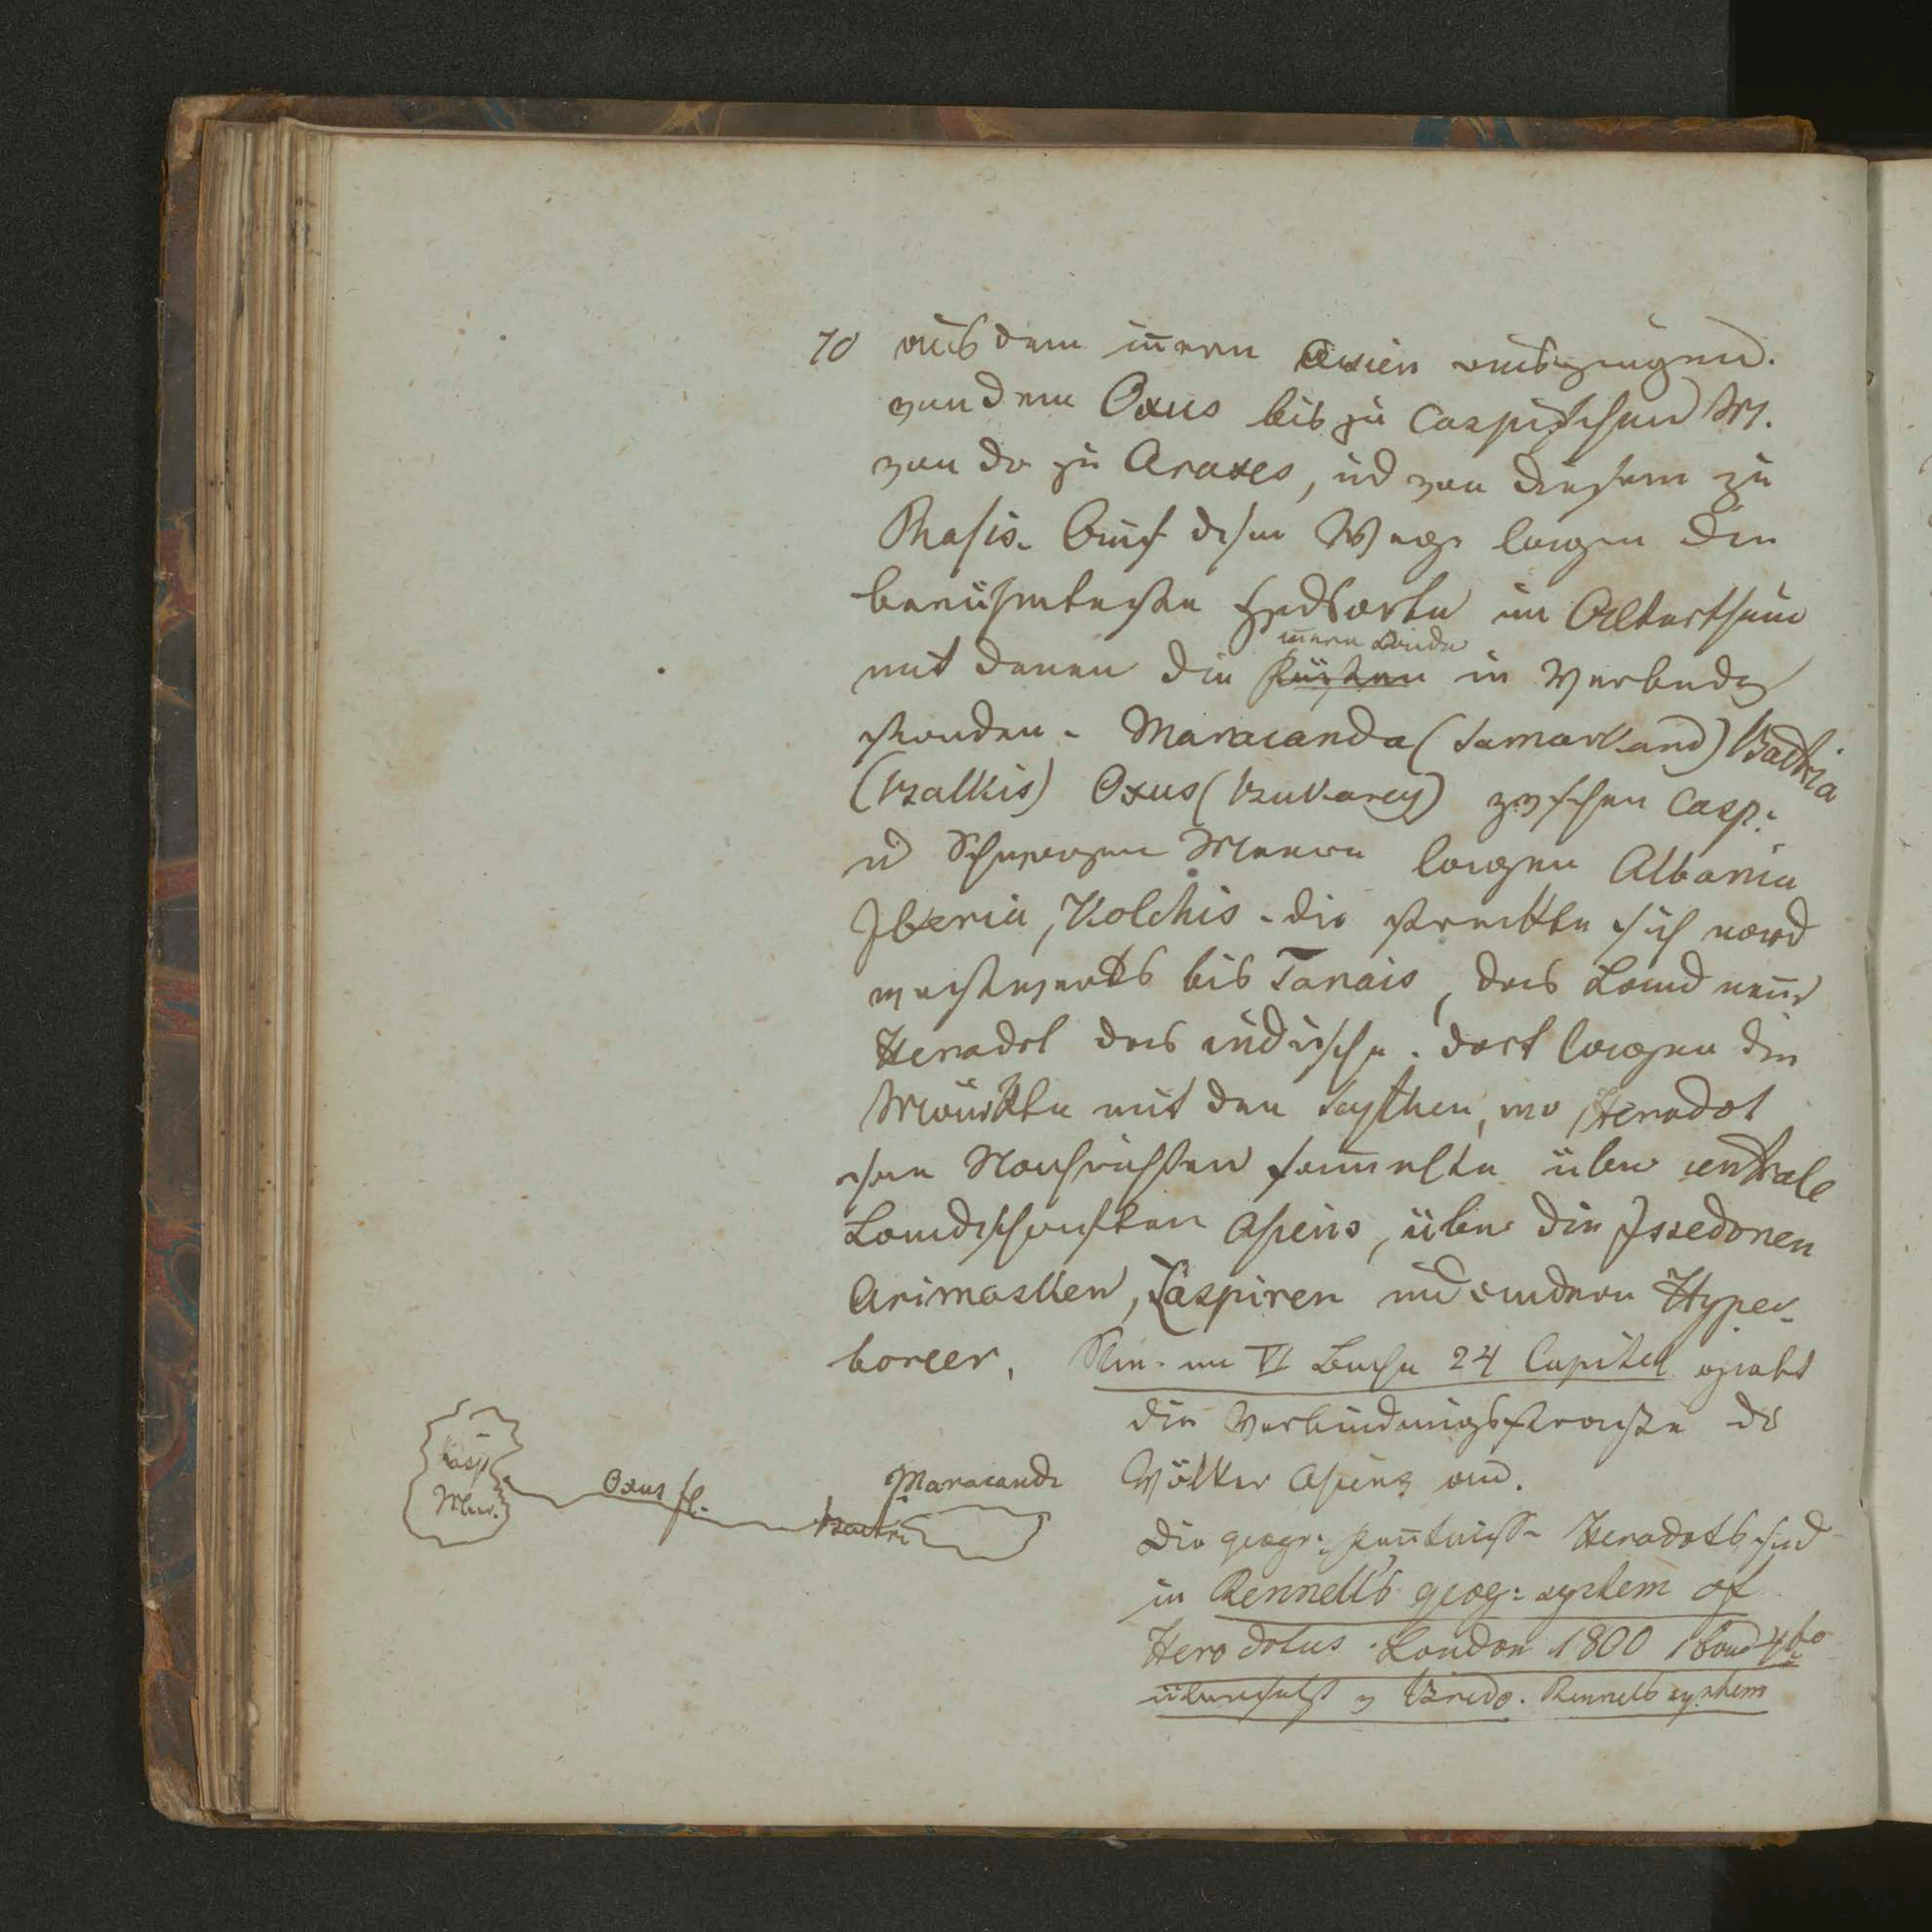 70 aus dem iñern Asien ausgingen.
von dem Oxus bis zu Caspischen M.
von da zu Araxes, ud von diesem zu
Phasis. Auf dism Wege lagen die
berühmtesten Hndlsorte im Alterthum
iñern Länder
mit denen die Küsten in Verbindg
standen - Maracanda (Samarkand) Bactria
(Balkis) Oxus (Bukarey) zwischen Casp:
ud Schwarzen Meere lagen Albania
Iberia, Kolchis - die streckte sich nord
westwerts bis Tanais, das Land neñt
Herodot das indische. dort lagen die
Märkte mit den Scythen, wo Herodot
Nachrichten sam̃elte über centrale
Landschaften Asiens, über die Issedonen
Arimasken, Caspiren und andern Hyper-
boreer. im VI Buche 24 Capitel giebt
die Verbindungsstrasse der
Völker Asiens an.
Die geogr: Keñtnisse Herodots sind
in Rennell's geog: system of
Herodotus. London 1800 1 Band 4to
übersetzt v Bredo. Rennels system
Kasp
Meer.
Oxus fl.
Maracanda
Bactri